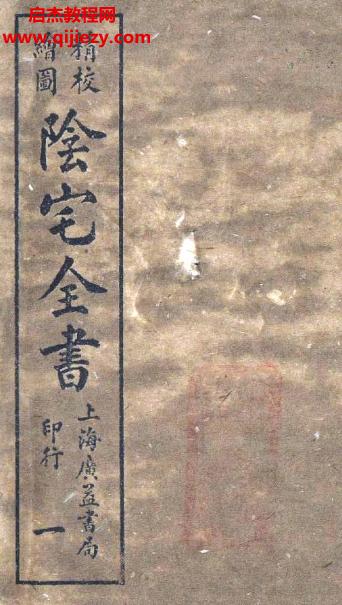 启杰教程网
www.qijiezy.com
精校
繪圖
陰宅全書
上海廣益書局
印行
一